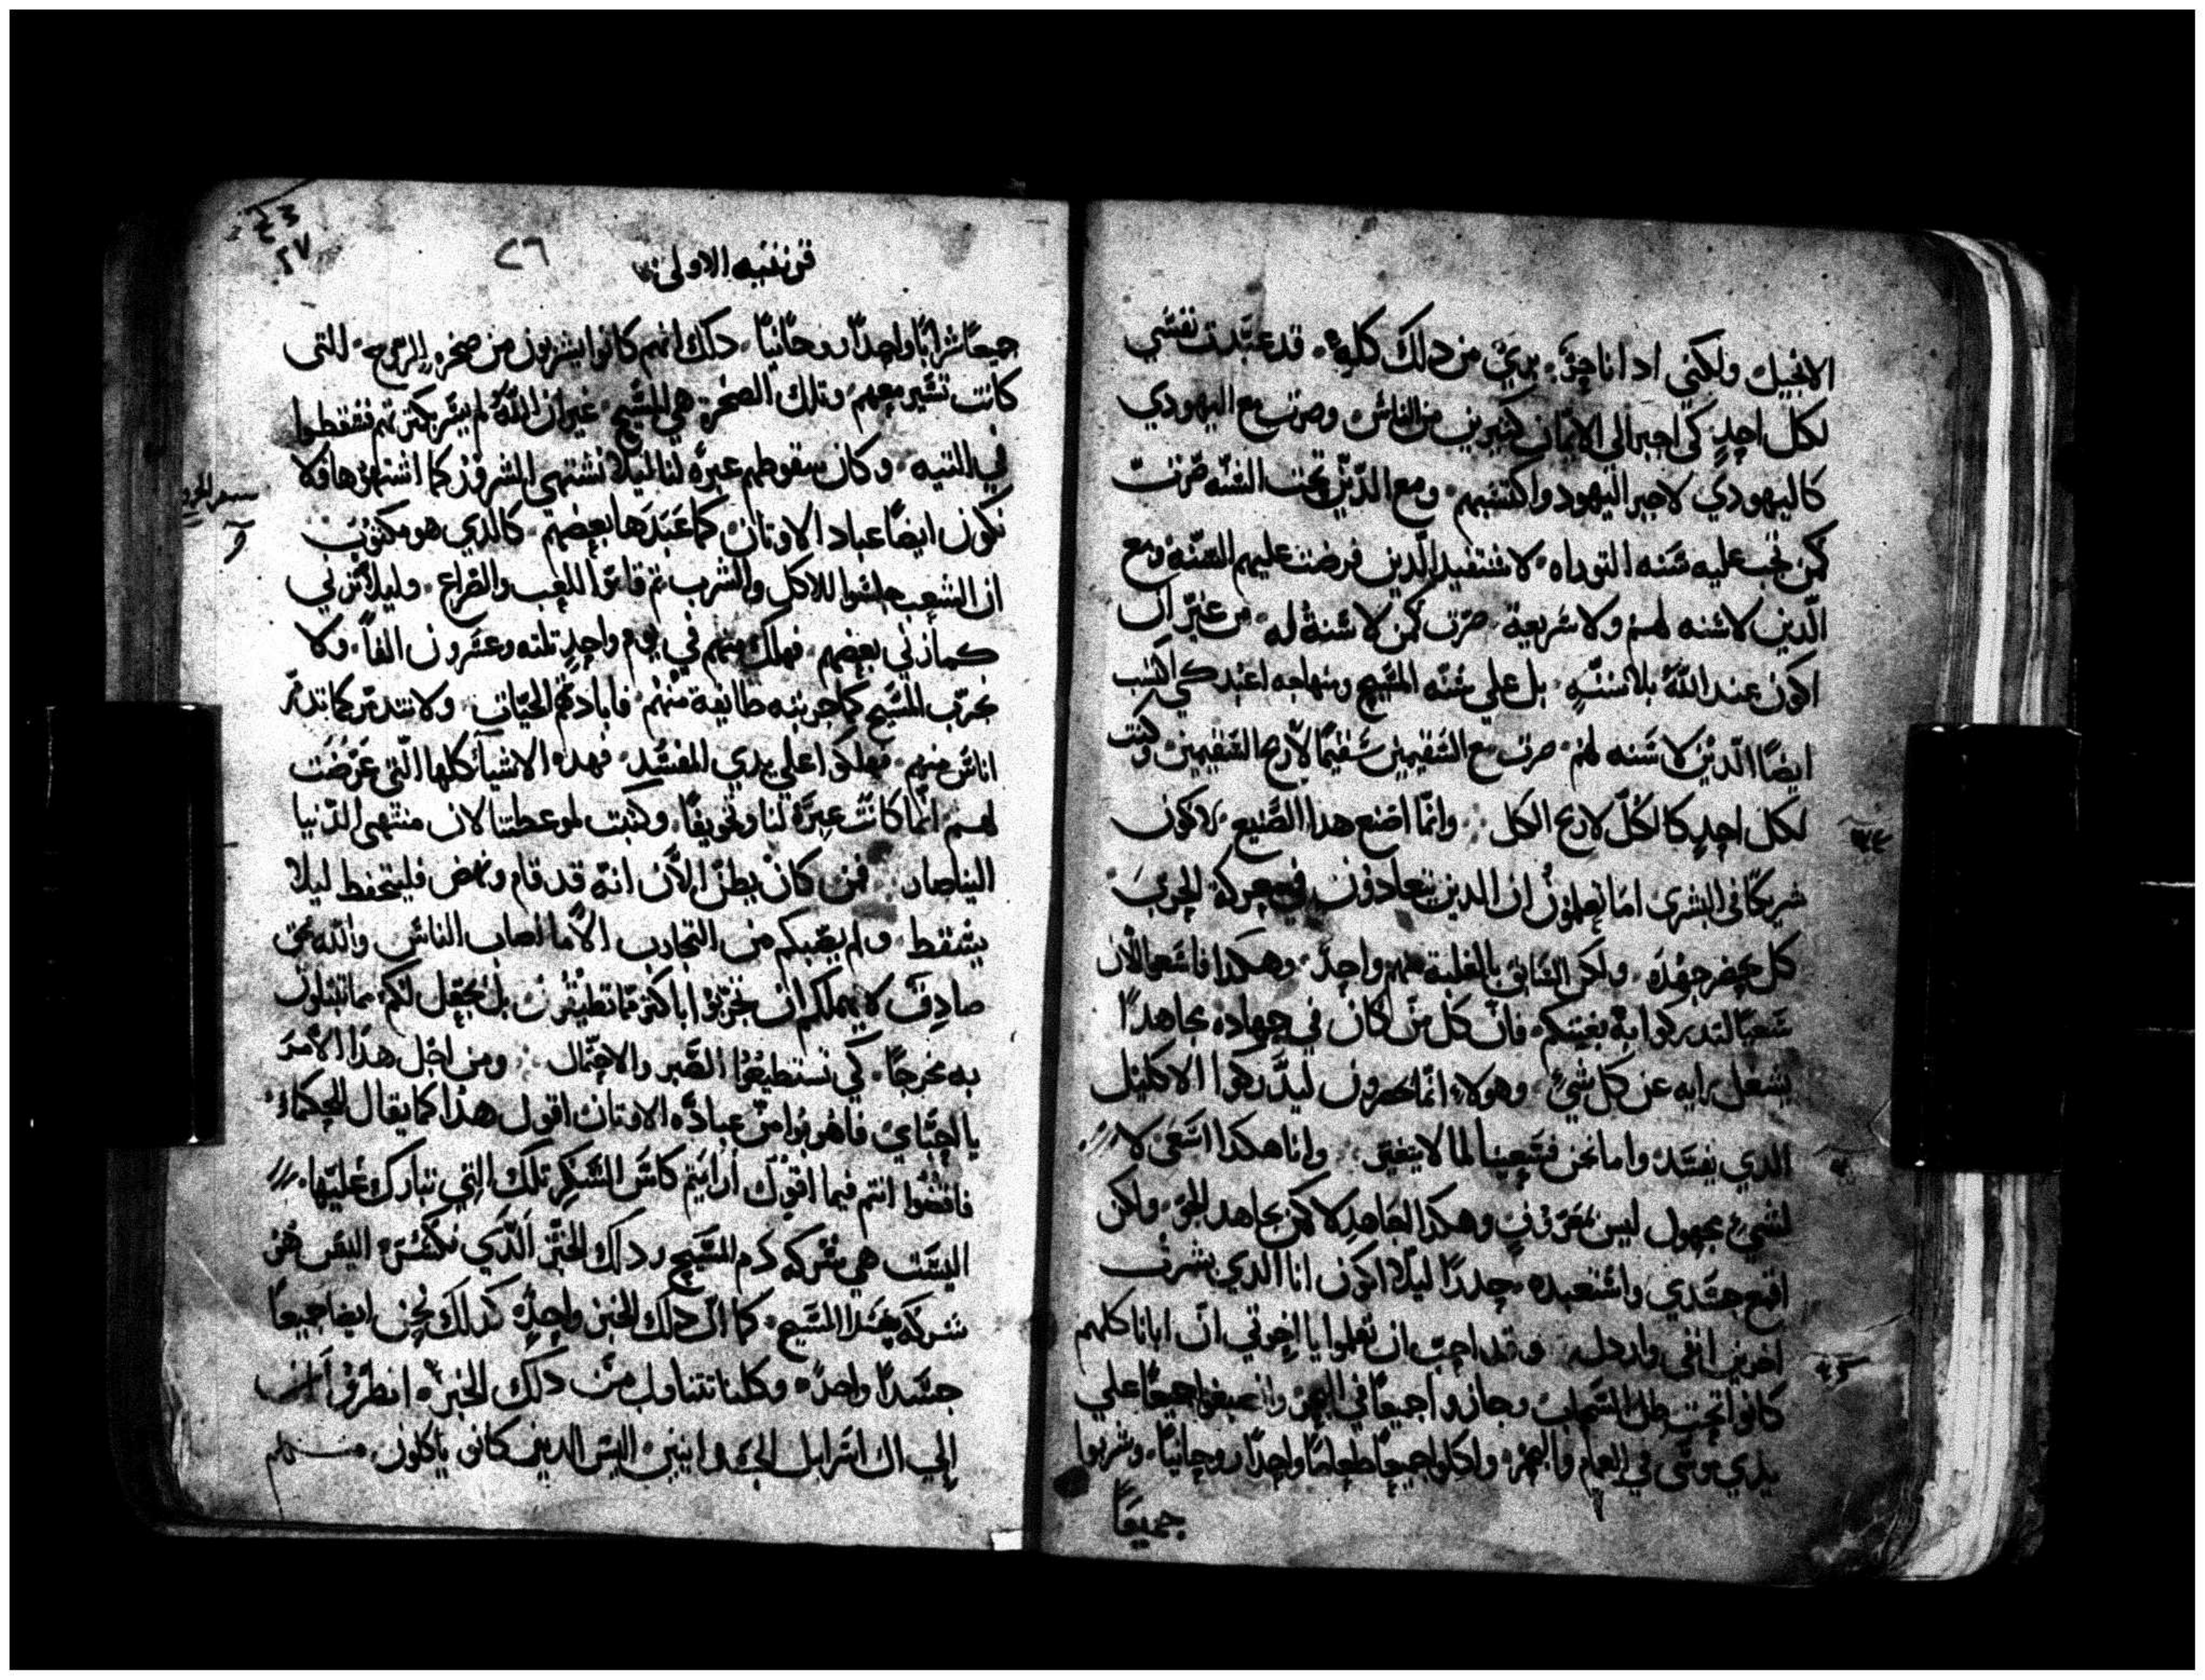 الانجيل ولكني اد انا حرٌ بريٌ من دلك كله قد عبّدت نفسي
لكل احدٍ كي اجبر الي الايمان كتيرين من الناس وصرت مع اليهودي
كاليهودي لاجبر اليهود واكتسبهم ومع الدّين تحت السّنه صرت
كمن تجب عليه سنه التوراه لاستفيد الّدين فرضت عليهم السّنه ومع
الّدين لا سنه لهم ولا شريعة صرت كمن لا سّنة له من غير ان
اكون عند اللّه بلا سنّهٍ بل علي سُنّه المسّيح ومنهاجه اعبد كي اكسب
ايضاً الّدين لا سَنه لهم صرت مع السّقيمين سَقيماً لاربح السّقيمين وكنت
لكل احدٍ كالكُلّ لاربح الكل وانّما اصنع هدا الصّنيع لاكون
شريكاً في البشرى اما تعلمون ان الدين يتعادون في معركة الحرب
كل يحضر جهْده ولكن السّابق بالغلبة منهم واحدٌ وهكدا فاسَعوا الان
سَعياً لتدركوا به بغيتكم فانّ كل من كان في جهاده مجاهداً
يشغل رايه عن كل شيٍ وهولاءِ انّما يحضرون ليدّركوا الاكليل
الدي يفسَد واما نحن فسَعينا لما لا يتغيّر وانا هكدا اسَعَى لا
لشيٍ مجهول ليس بمعروفٍ وهكدا اجاهد لا كمن يجاهد الجو ولكن
اقمع جسَدي واسَتعبده حدراً ليلّا اكون انا الدي بشرت
اخرين انفى واردل وقد احبّ ان تعلموا يا اخوتي انّ ابانا كلهم
كانوا تحت ظل السّحاب وجازوا جميعاً في البحر وانصبغوا جميعاً علي
يدي موسَى في الغمام والبحر واكلوا جميعاً طعاماً واحداً روحانياً وشربوا
جميعاً
قرنتيه الاولى
٢٦
جميعاً شراباً واحداً روحانياً دلك انهم كانوا يشربون من صخرة الروح التى
كانت تسَير معهم وتلك الصخرة هي المسَيح غير ان اللّه لم يسَر بكترتهم فسَقطوا
في التيه وكان سقوطهم عبرةً لنا ليلّا نشتهي الشرور كما اشتهوها ولا
نكون ايضاً عباد الاوتان كما عَبَدَها بعضهم كالدي هو مكتوب
ان الشعب جلسَوا للاكل والشرب تم قاموا للعب والصّراع وليلا نزني
كما زني بعضهم فهلك منهم في يوم واحدٍ تلته وعشرون الفاً ولا
نجرّب المسَيح كما جربته طايفة منهم فابادتهم الحيّات ولا نتدمّر كما تدمّر
اناسَ منهم فهلكوا علي يدي المفسَد فهده الاشيآ كلها الّتي عَرَضَت
لهم انّما كانَت عِبرَةً لنا وتخويفاً وكتبت لموعظتنا لان منتهى الدّنيا
الينا صار فمن كان يظنّ الان انه قد قام ونهض فليتحفظ ليلا
يسَقط ولم يصّبكم من التجارب الّا ما اصاب الناسَ واللّه محق
صادق لا يهملكم ان تجرّبوا باكتر ممّا تطيقون بل يجعل لكم مما تبتلون
به مخرجاً كي تسَتطيعُوا الصّبر والاحتمال ومن اجل هدا الامرَ
يا احبّاي فاهربُوا من عبادّه الاوتان اقول هدا كما يقال للحكماءِ
فاقضُوا انتم فيما اقول ارايتم كاسَ الشكر تلك التي نتبارك عليها
اليسَت هي شركه دم المسَيح ودلك الخبزَ الّدي نكسَره اليسَ هو
شركه جسَد المسَيح كما انّ دلك الخبز واحدٌ كدلك نحن ايضاً جميعاً
جسَدًا واحدٌ وكلنا نتناول من دلك الخبز انظرُوا
الي ال اسَرايل الجسَدانيين اليسَ الدين كانو ياكلون